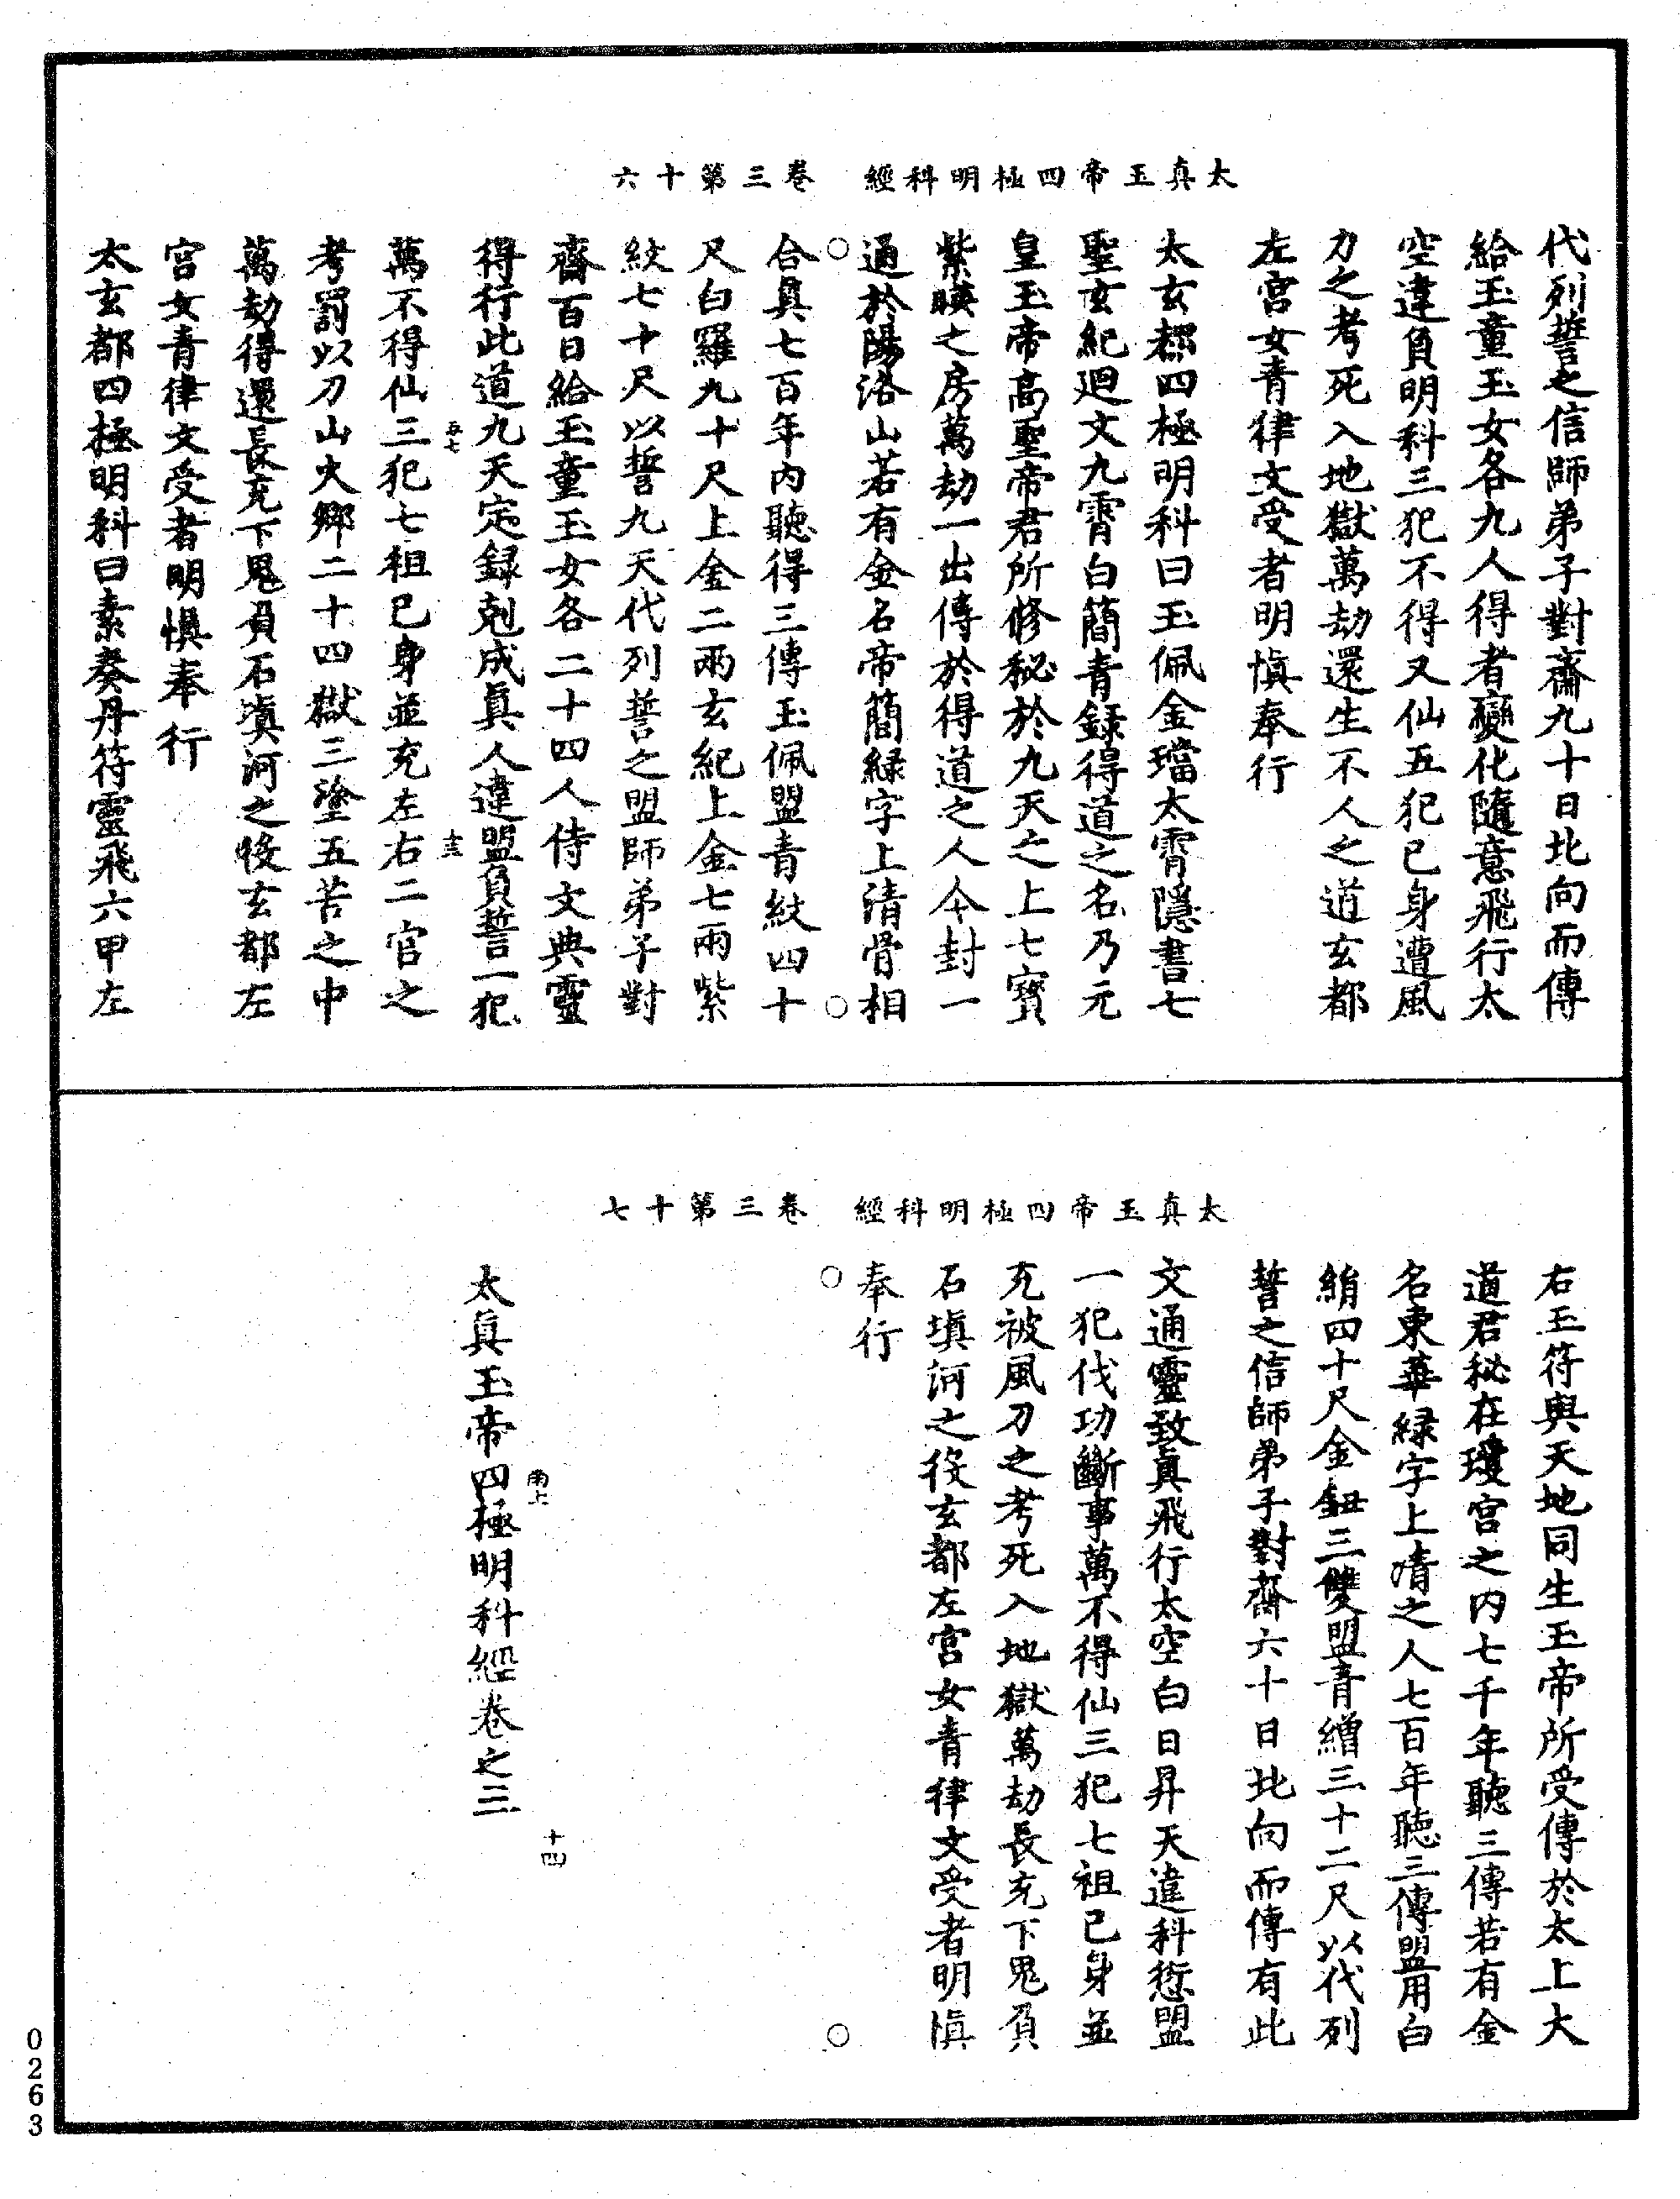 太真玉帝四極明科經　卷三第十六
代列誓之信師弟子對齋九十日北向而傳
給玉童玉女各九人得者變化隨意飛行太
空違負明科三犯不得又仙五犯已身遭風
刀之考死入地獄萬劫還生不人之道玄都
左宮女青律文受者明慎奉行
太玄都四極明科曰玉佩金璫太霄隱書七
聖玄紀迴文九霄白簡青録得道之名乃元
皇玉帝高聖帝君所修秘於九天之上七寶
紫暎之房萬劫一出傳於得道之人今封一
通於陽洛山若有金名帝簡緑字上清骨相
合真七百年內聽得三傳玉佩盟青紋四十
尺白羅九十尺上金二兩玄紀上金七兩紫
紋七十尺以誓九天代列誓之盟師弟子對
齋百日給玉童玉女各二十四人侍文典靈
得行此道九天定録剋成真人違盟負誓一犯
五七
十三
萬不得仙三犯七祖已身並充左右二官之
考罰以刀山火鄉二十四獄三塗五苦之中
萬劫得還長充下鬼負石填河之役玄都左
宮女青律文受者明慎奉行
太玄都四極明科曰素奏丹符靈飛六甲左
太真玉帝四極明科經　卷三第十七
右玉符與天地同生玉帝所受傳於太上大
道君秘在瓊宮之內七千年聽三傳若有金
名東華緑字上清之人七百年聽三傳盟用白
絹四十尺金鈕三雙盟青繒三十二尺以代列
誓之信師弟子對齋六十日北向而傳有此
文通靈致真飛行太空白日昇天違科愆盟
一犯伐功斷事萬不得仙三犯七祖已身並
充被風刀之考死入地獄萬劫長充下鬼負
石填河之役玄都左宮女青律文受者明慎
奉行
南上
十四
太真玉帝四極明科經卷之三
0263